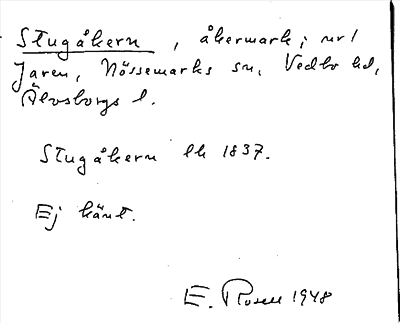 Stugåkern, åkermark; nr 1
Jaren, Nössemarks sn, Vedbo hd,
Älvsborgs l.
Stugåkern lh 1837.
Ej känt.
E. Rosell 1948